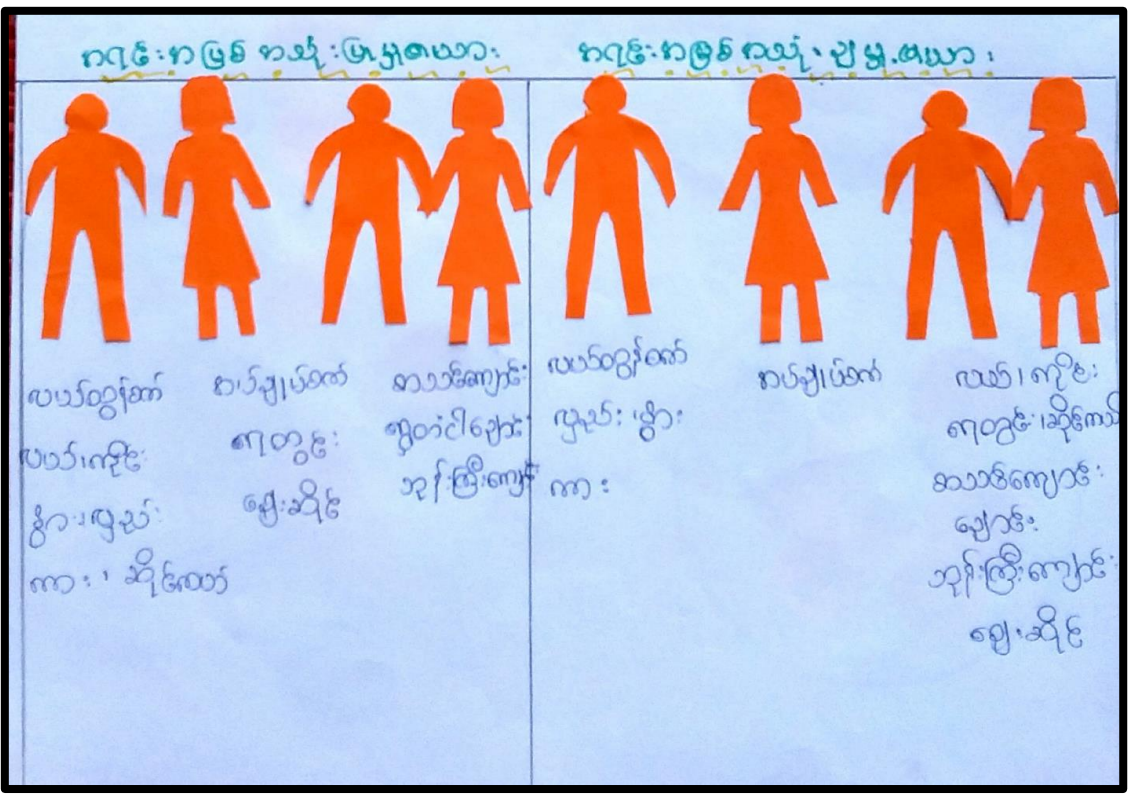 အရင်းအမြစ် အသုံးပြုမှုဇယား
အရင်းအမြစ် အသုံးချမှုဇယား
လယ်ထွန်စက်
လယ်၊ကိုင်း
နွား၊လှည်း
ကား၊ ဆိုင်ကယ်
စပ်ချုပ်စက်
ရေတွင်း
ဈေးဆိုင်
စာသင်ကျောင်း
ဘုန်းကြီးကျောင်း
လယ်ထွန်စက်
လှည်း၊နွား
ကား
စပ်ချုပ်စက်
လယ်၊ ကိုင်း
ရေတွင်း၊ဆိုင်ကယ်
စာသင်ကျောင်း
ချောင်း
ဘုန်းကြီးကျောင်း
ဈေးဆိုင်